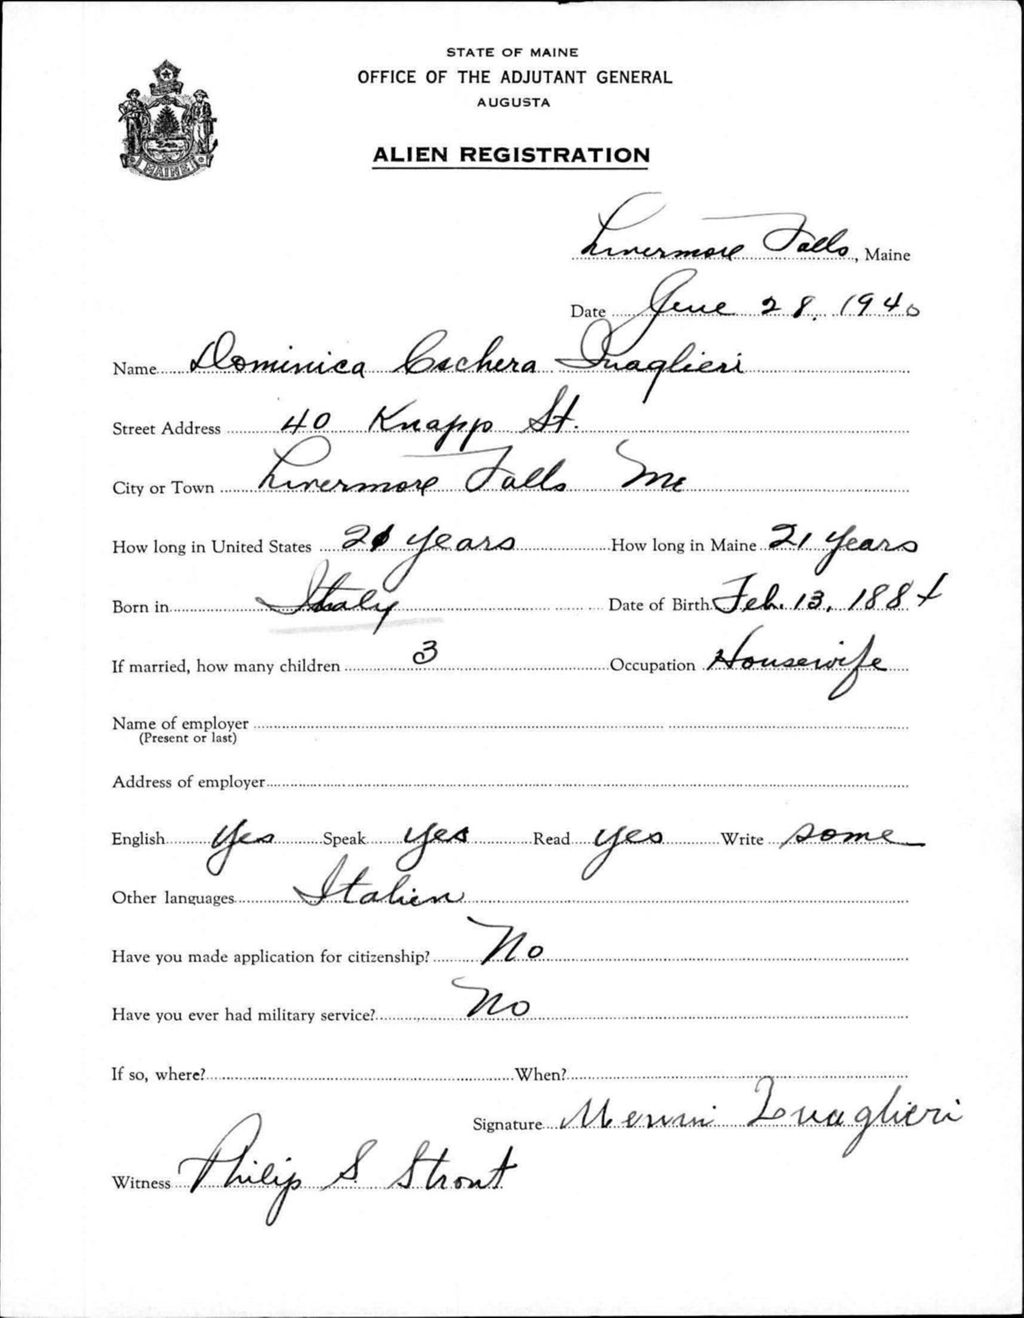 STATE OF MAINE
OFFICE OF THE ADJUTANT GENERAL
AUGUSTA
MAINE
ALIEN REGISTRATION
Livermore Falls, Maine
Date June 28, 1940
Name Dominica Quaglieri
Street Address 40 Knapp St.
City or Town Livermore Falls Me
How long in United States 21 years How long in Maine 21 years
Born in Italy Date of Birth Feb. 13, 188
If married, how many children 3 Occupation Housewife
Name of employer
(Present or last)
Address of employer
English Yes Speak yes Read yes Write some
Other languages Italien
Have you made application for citizenship? No
Have you ever had military service? No
If so, where? When?
Signature Quaglieri
Witness Philip S. Strout